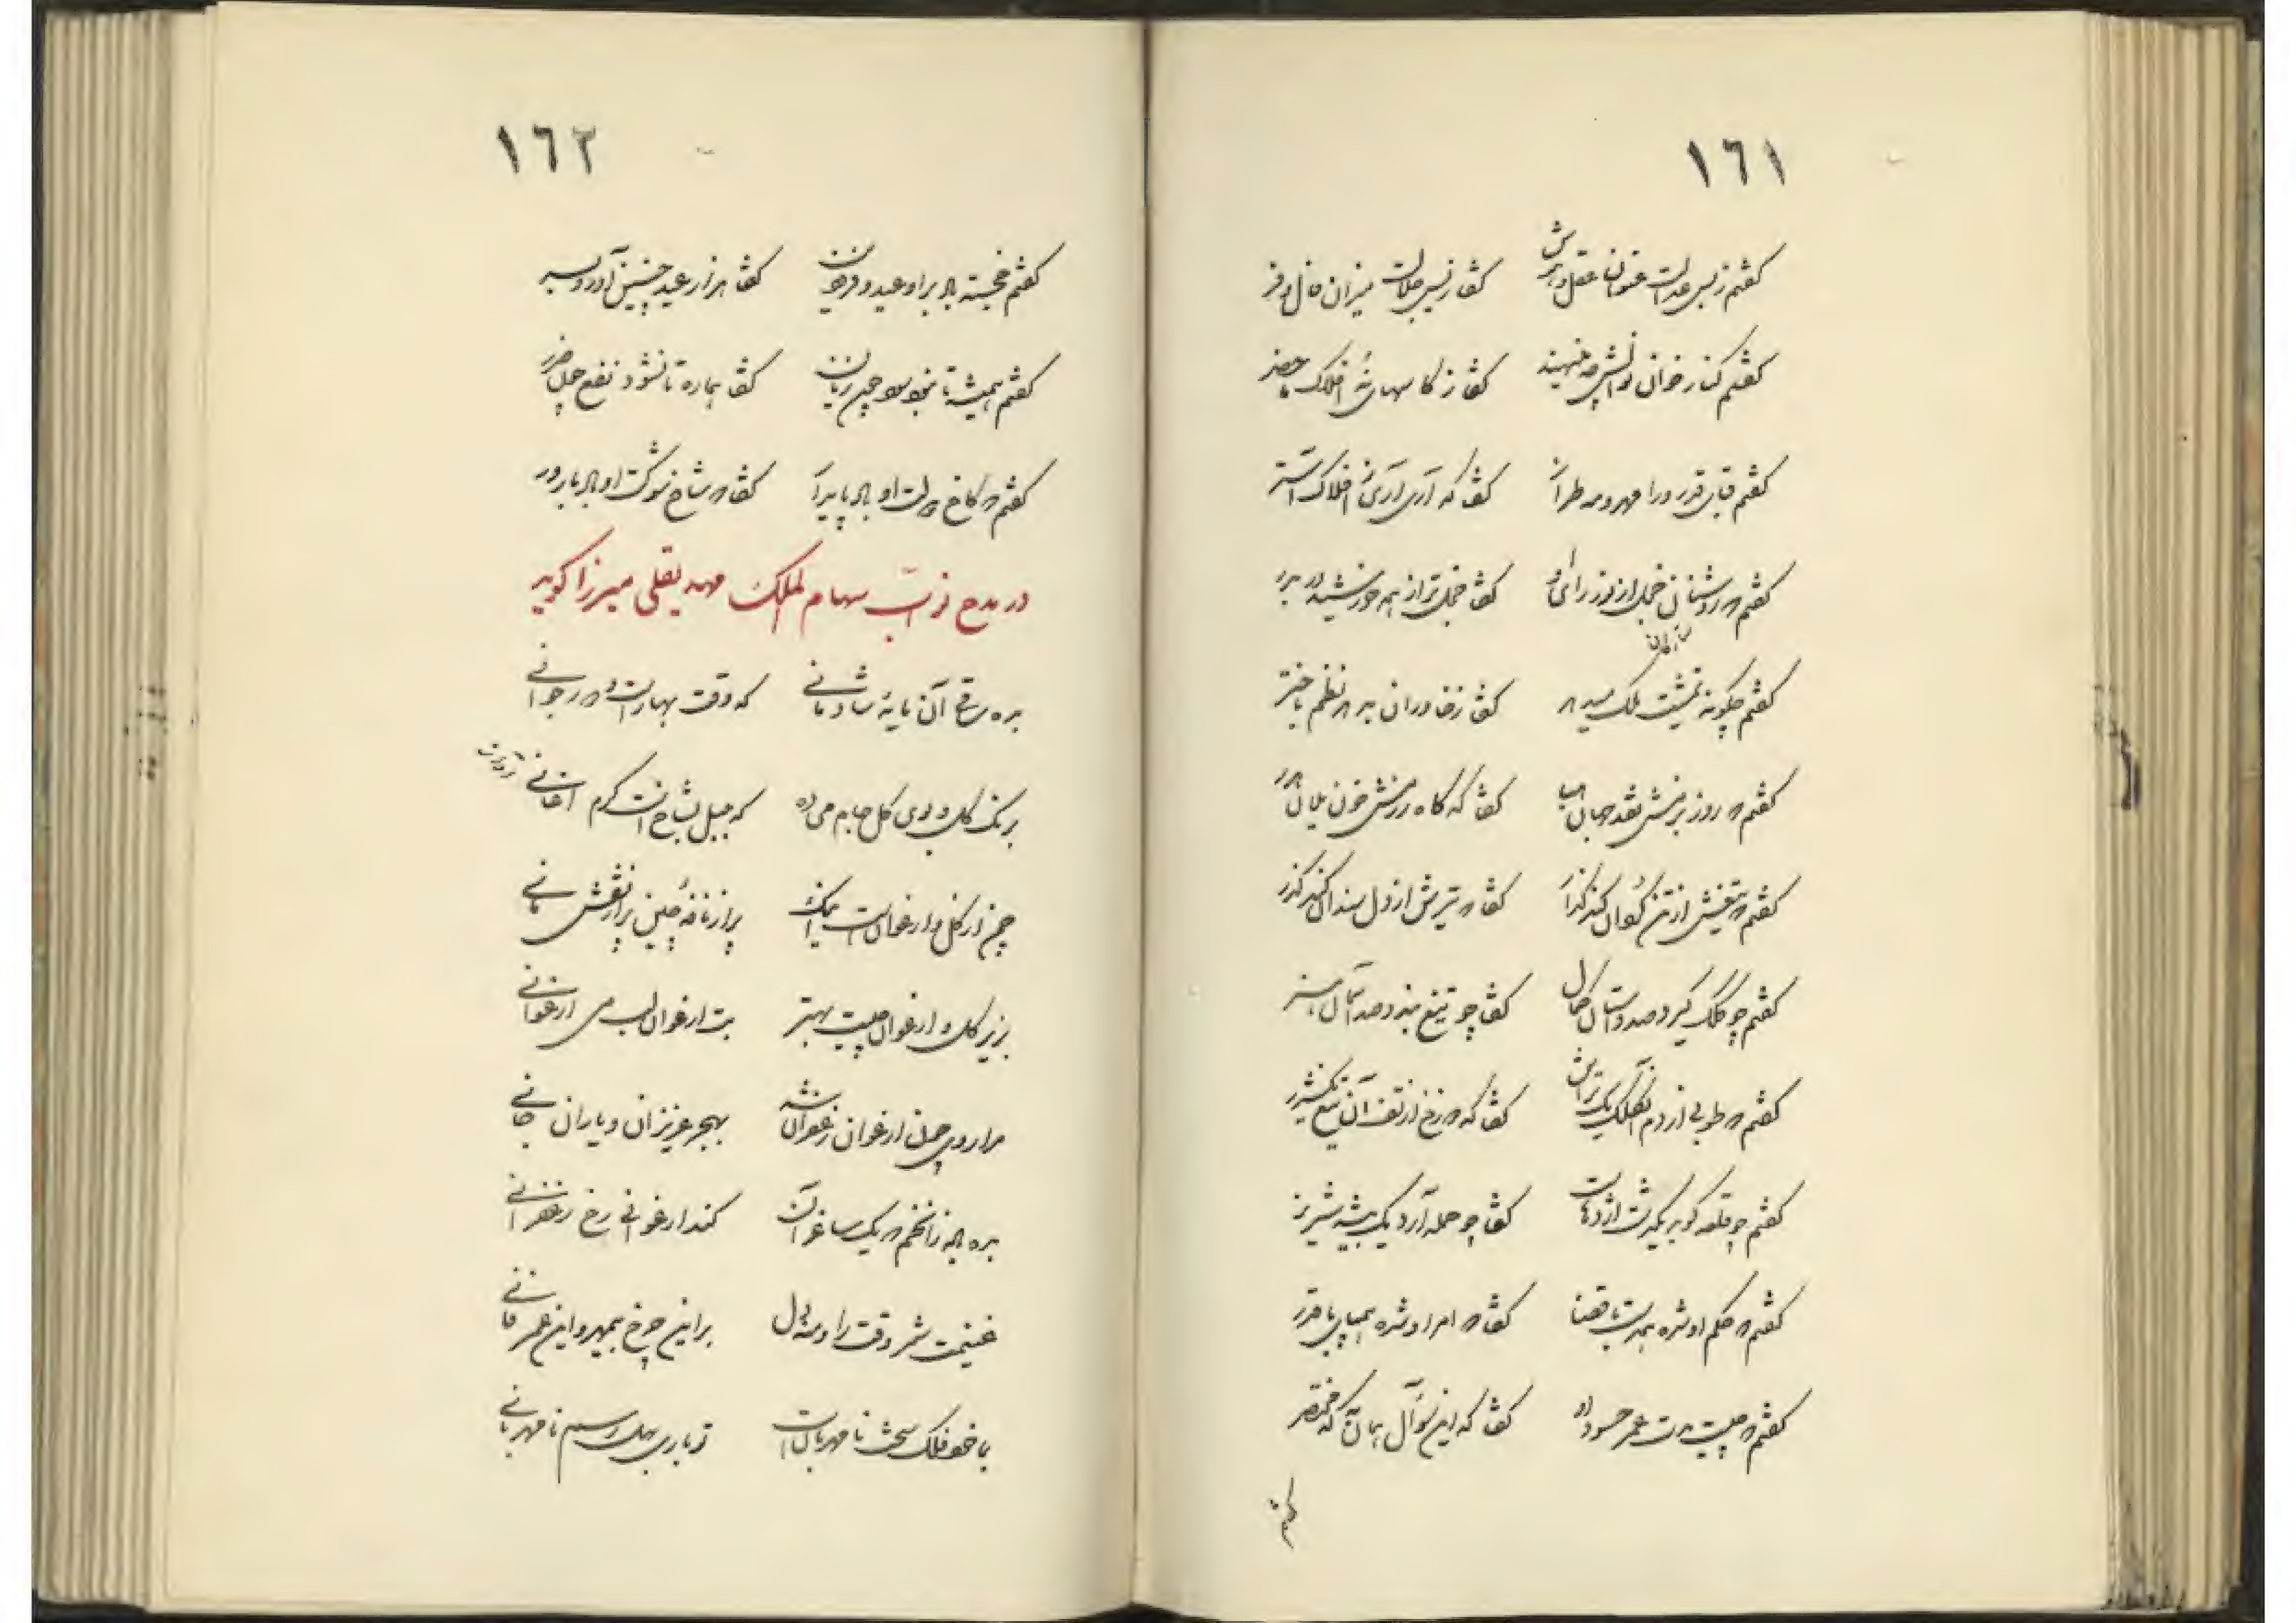 ١٦١
گفتم ز بس عدالت عنوان عقل و هوش گفتا ز بس جلالت میزان فال و فر
گفتم کنار خوان نوالش چه مینهند گفتا ز کاسهای نه افلاک ماحضر
گفتم قبای قدر ورا مهر و مه طراز گفتا که آری آری نه افلاک آستر
گفتم که روشنان خجل از نور رای او گفتا خجلتر از همه خورشید در بدر
گفتم چگونه تمشیت ملک میدهد گفتا ز خاوران بدهد نظم باختر
گفتم که روز بزمش نقد جهان هبا گفتا که گاه رزمش خون یلان هدر
گفتم که تیغش از تن گوان کند گذار گفتا که تیرش از دل سندان کند گذر
گفتم چو کلک گیرد صد داستان کمال گفتا چو تیغ بندد صد آسمان هنر
گفتم که طوبی از دم آن کلک یک تراش گفتا که دوزخ از تف آن تیغ یک شرر
گفتم چو قلعه کوبد یکدشت اژدهاست گفتا چو حمله آرد یک بیشه شیر نر
گفتم که حکم او شده همدست با قضا گفتا که امر او شده همپای با قدر
گفتم که چیست مدت عمر حسود او گفتا که این سؤال همان به که مختصر
گفتم
١٦٢
گفتم خجسته باد بر او عید و فرودین گفتا هزار عید چنین آورد بسر
گفتم همیشه تا نبود سود چون زیان گفتا هماره تا نشود نفع چون ضرر
گفتم که کاخ دولت او باد پایدار گفتا که شاخ شوکت او باد بارور
در مدح نواب سهام الملک مهدیقلی میرزا گوید
بده ساقی آن مایه شادمانی که وقت بهار است و دور جوانی
برنگ گل و بوی گل جام می ده که بلبل بشاخ است گرم اغانی
چمن از گل و ارغوان است اینک پر از نافه چین پر از نقش مانی
بزیر گل و ارغوان چیست بهتر بت ارغوان لب می ارغوانی
مرا روی چون ارغوان زعفران شد بهجر عزیزان و یاران جانی
بده باده زان خم که یک ساغر آن کند ارغوانی رخ زعفرانی
غنیمت شمر وقت را و منه دل بر این چرخ بیمهر و این عمر فانی
با خود فلک سخت نامهربان است تو باری بهل رسم نامهربانی